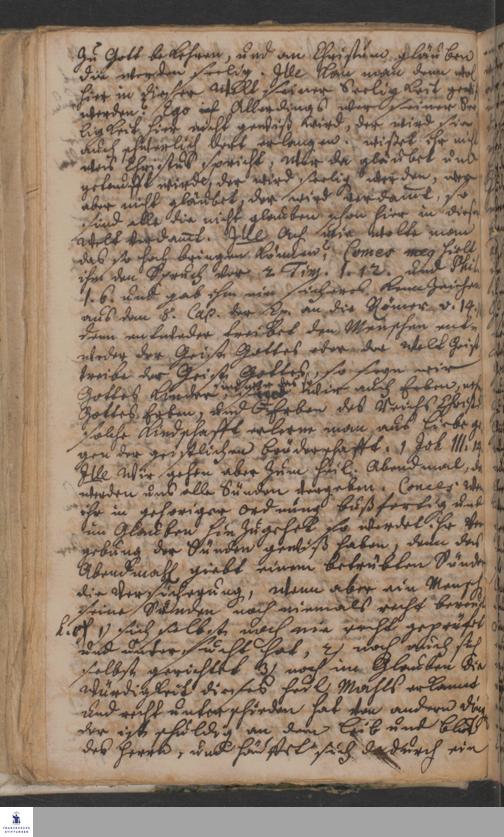 Zu Gott bekehren, und an Christum gläuben
die werden seelig. Ille Kan man denn wol
hier in dieser Welt seiner Seeligkeit gewiß
werden? Ego ich Allerdings wer seiner See
ligkeit hier nicht gewiß wird, der wird sie
auch schwerlich dort erlangen. wißet ihr nicht
was Christus spricht, Wer da gläubet und
getaufft wird, der wird seelig werden, wer
aber nicht gläubet, der wird verdamt, so
sind alle die nicht glauben schon hier in dieser
Welt verdamt. Ille Ach wie wolte man
das so hoch bringen können? Comes meus hielt
ihm den Spruch vor 2 Tim. 1. 12. und Phil.
1. 6. und gab ihm ein sicheres Kennzeichen
aus dem 8. Cap. der Ep. an die Römer v. 14.
denn entweder treibet den Menschen ent-
weder der Geist Gottes oder der Welt Geist
treibt der Geist Gottes, so seyn wir
Gottes Kinder, sind wir auch Erben, nehml.
Gottes Erben, und Miterben des Reichs Christi
solche Kindschafft erlerne man aus Liebe ge
gen der geistlichen brüderschafft. 1 Joh III. 14
Ille Wir gehen aber zum heil. Abendmal, da
werden uns alle Sünden vergeben. Comes: Wenn
ihr in gehöriger ordnung bußfertig und
im Glauben hinzugehet so werdet ihr Ver
gebung der Sünden gewiß haben, denn das
Abendmahl giebt einem betrübten Sünder
die Versicherung, wenn aber ein Mensch
seine Sünden noch niemals recht bereuet
1) sich selbst noch nie recht geprüfet
und untersucht hat, 2) noch auch sich
selbst gerichtet 3) noch im Glauben die
Würdigkeit dieses heil. Mahls erkannt
und recht unterschieden hat von andern Dingen
der ist schuldig an dem Leib und Blut
des Herrn, und häuffet sich dadurch ein
FRANCKESCHE
STIFTUNGEN